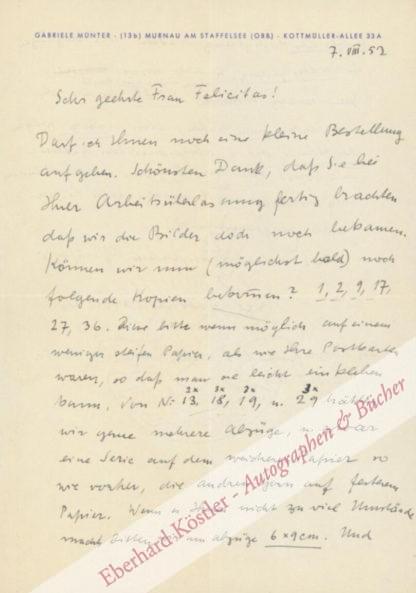 GABRIELE MÜNTER · (13b) MURNAU AM STAFFELSEE (OBB) · KOTTMÜLLER-ALLEE 33A
7. VIII. 52
Sehr geehrte Frau Felicitas!
Darf ich Ihnen noch eine kleine Bestellung
aufgeben. Schönsten Dank, daß Sie bei
Ihrer Arbeitsüberlastung fertig brachten
daß wir die Bilder doch noch bekamen.
Können wir nun (möglichst bald) noch
folgende Kopien bekommen? 1, 2, 9, 17,
27, 36. Diese bitte wenn möglich auf einem
weniger steifen Papier, als wie Ihre Postkarten
waren, so daß man sie leicht einkleben
kann. Von N: 13, 18, 19, u. 29 hätten
2x 3x 2x 3x
wir gerne mehrere Abzüge, u.
eine Serie auf dem weicheren Papier so
wie vorher, die andren auf festerem
Papier. Wenn nicht zu viel Umstände
macht bitten um abzüge 6 x 9 cm. Und
Eberhard Köstler - Autographen & Bücher